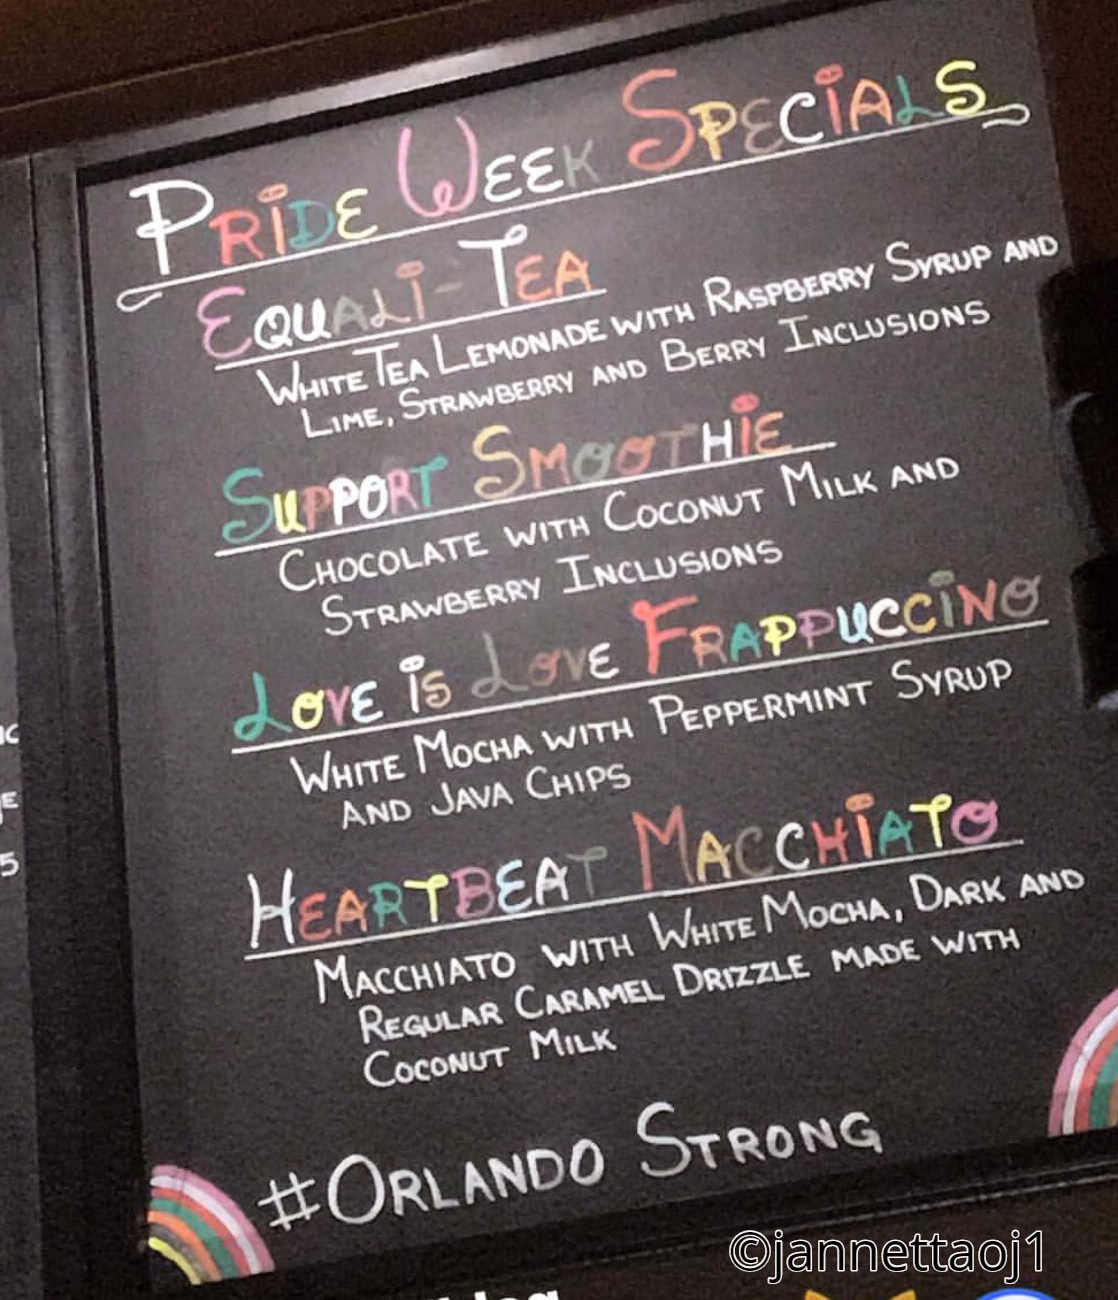 PRIDE WEEK SPECIALS
EQUALI-TEA
WHITE TEA LEMONADE WITH RASPBERRY SYRUP AND
LIME, STRAWBERRY AND BERRY INCLUSIONS
SUPPORT SMOOTHIE
CHOCOLATE WITH COCONUT MILK AND
STRAWBERRY INCLUSIONS
LOVE IS LOVE FRAPPUCCINO
WHITE MOCHA WITH PEPPERMINT SYRUP
AND JAVA CHIPS
HEARTBEAT MACCHIATO
MACCHIATO WITH WHITE MOCHA, DARK AND
REGULAR CARAMEL DRIZZLE MADE WITH
COCONUT MILK
#ORLANDO STRONG
©jannettaoj1